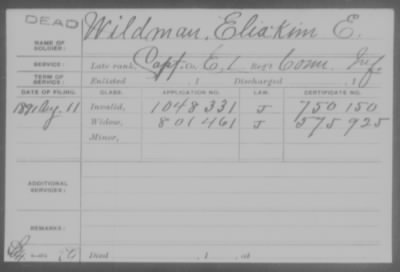 DEAD
NAME OF SOLDIER: Wildman, Eliakim E.
SERVICE: Late rank, Capt. Co. E, 1 Reg't Conn. Inf.
TERM OF SERVICE: Enlisted , 1 Discharged , 1
DATE OF FILING. CLASS. APPLICATION NO. LAW. CERTIFICATE NO.
1891 Aug. 11 Invalid, 1048331 J 750150
Widow, 801461 J 575925
Minor,
ADDITIONAL SERVICES:
REMARKS:
Died , 1 , at